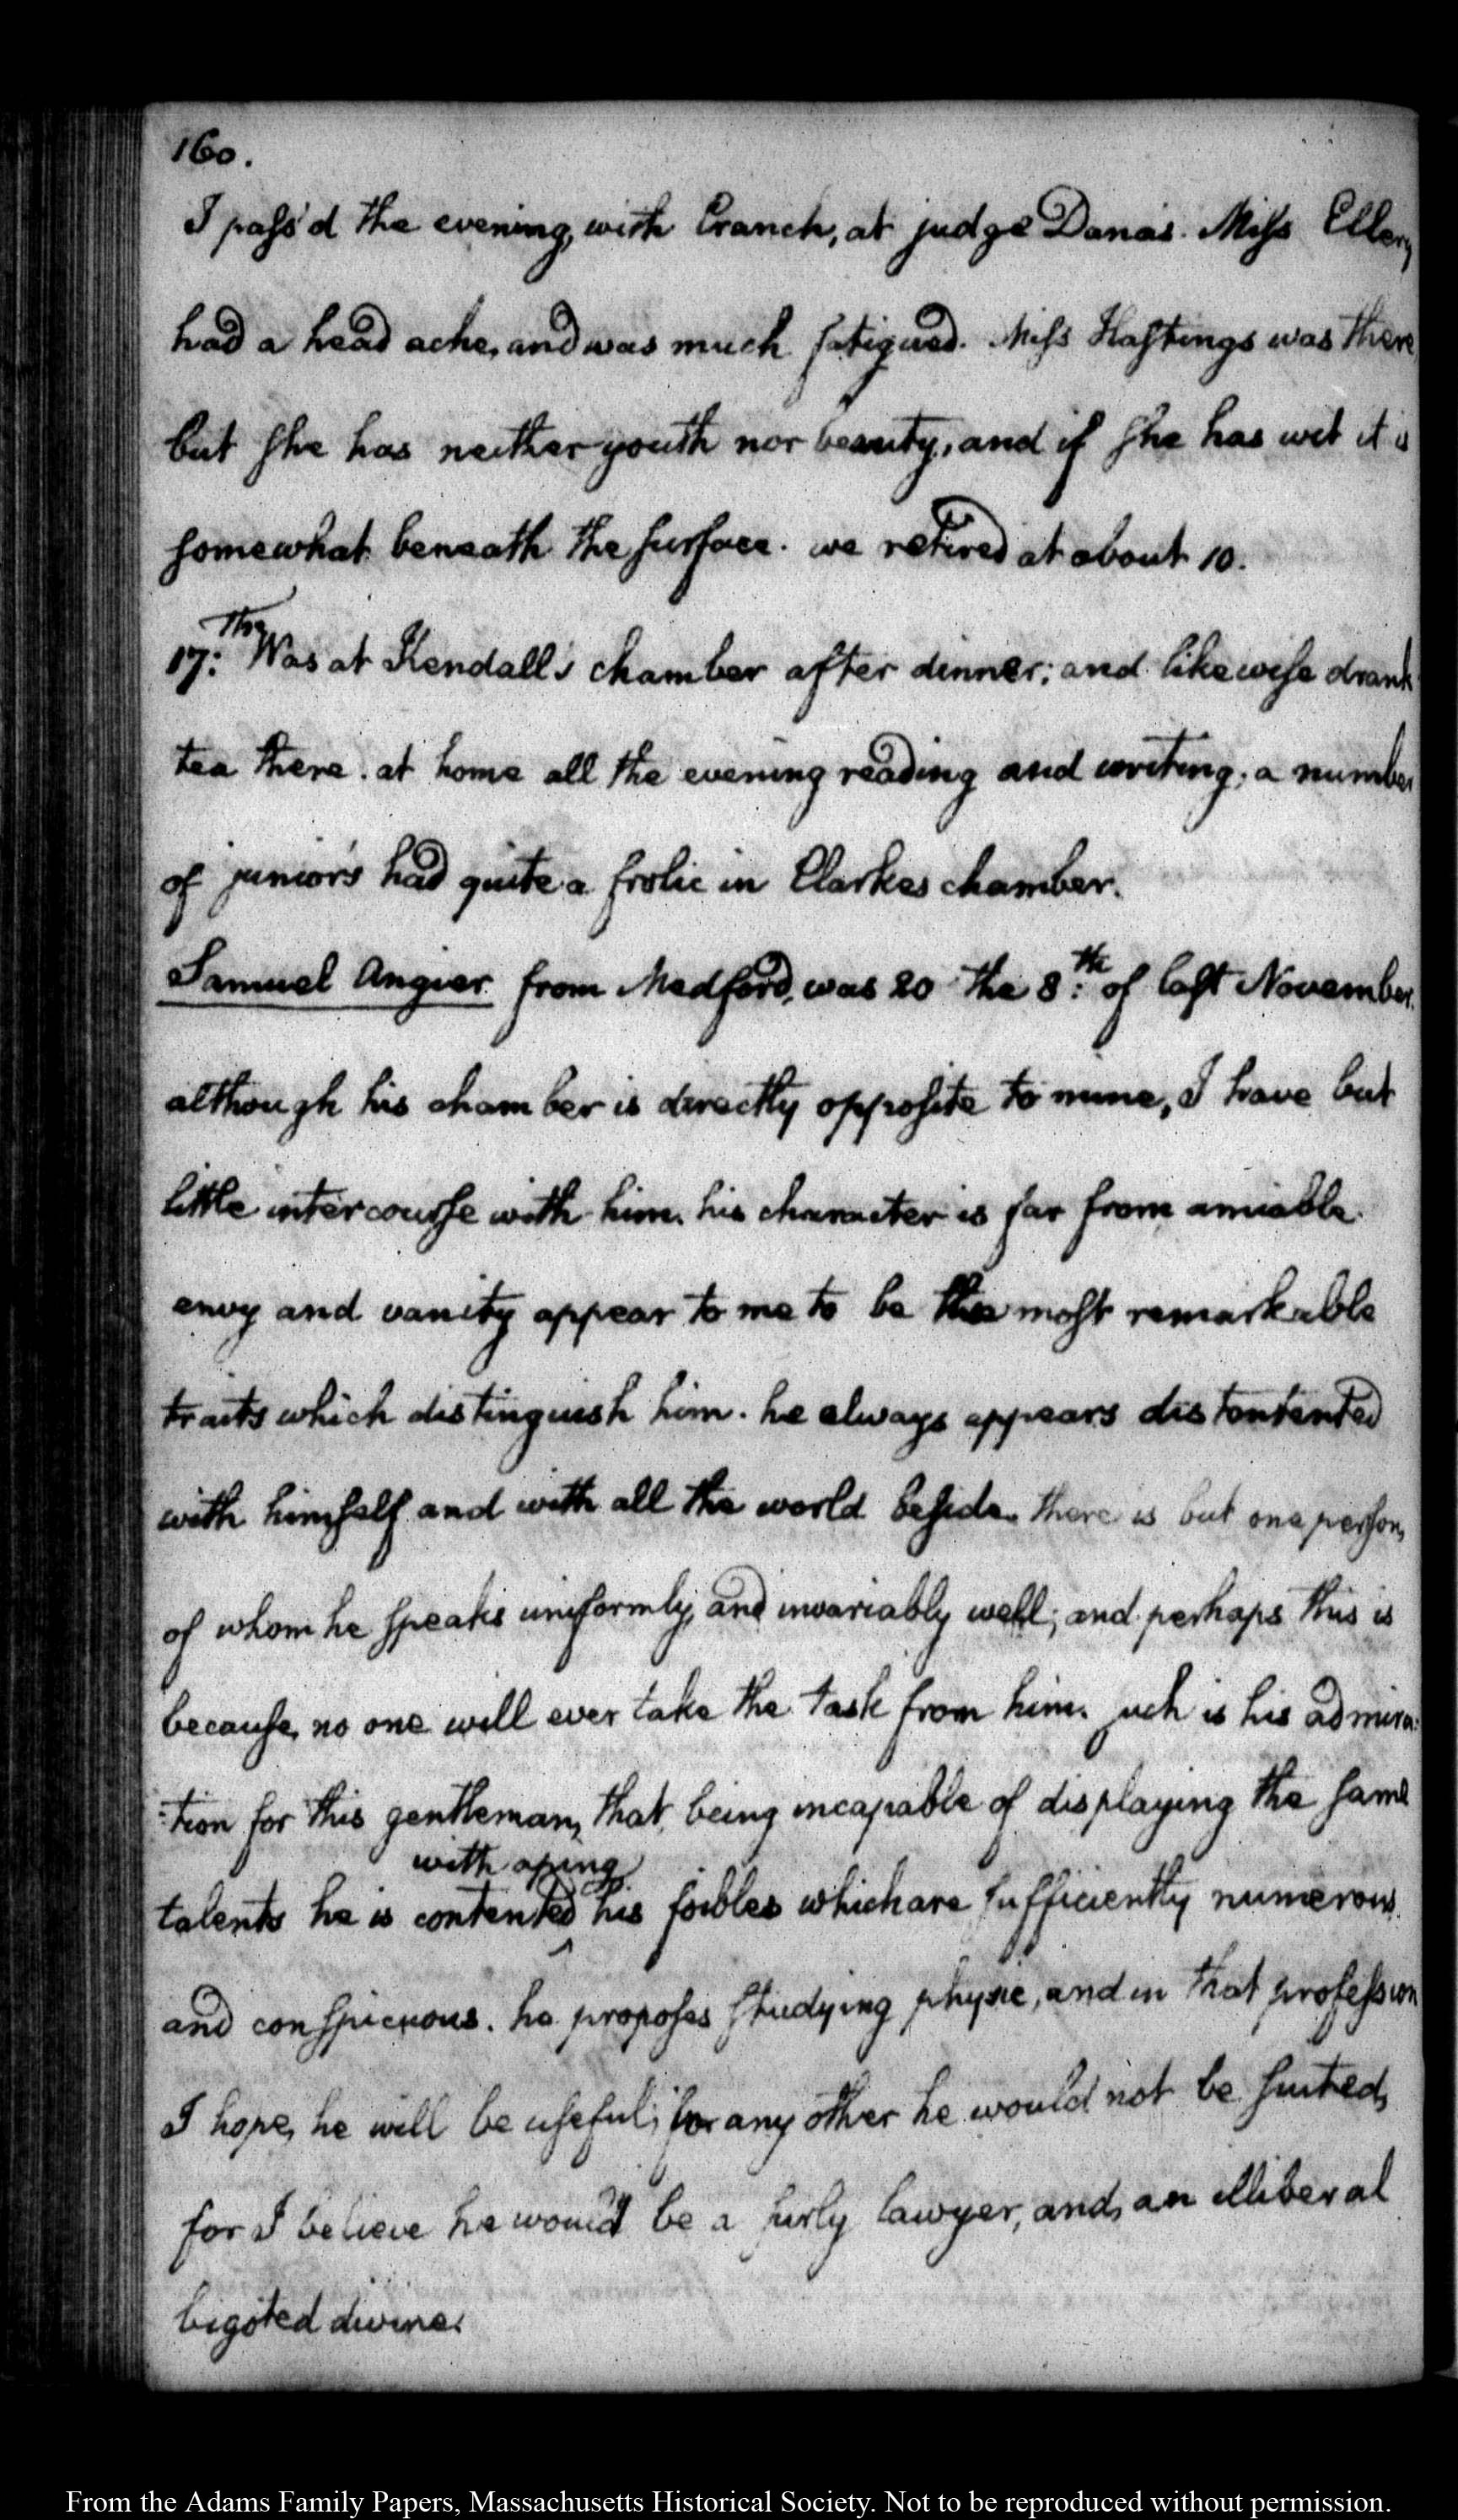 160.
I pass'd the evening, with Cranch, at judge Dana's. Miss Ellery
had a head ache, and was much fatigued. Miss Hastings was there
but she has neither youth nor beauty, and if she has wit it is
somewhat beneath the surface. we retired at about 10.
17:th Was at Kendall's chamber after dinner; and likewise drank
tea there. at home all the evening reading and writing; a number
of junior's had quite a frolic in Clarkes chamber.
Samuel Angier from Medford, was 20 the 8:th of last November.
although his chamber is directly opposite to mine, I have but
little intercourse with him. his character is far from amiable.
envy and vanity appear to me to be the most remarkable
traits which distinguish him. he always appears distontented
with himself and with all the world beside. there is but one person,
of whom he speaks uniformly, and invariably well; and perhaps this is
because, no one will ever take the task from him. such is his admira-
:tion for this gentleman, that, being incapable of displaying the same
with aping
talents he is contented his foibles which are sufficiently numerous.
and conspicuous. he proposes studying physic, and in that profession
I hope, he will be useful; for any other he would not be suited,
for I believe he would be a surly lawyer, and, an illiberal
bigoted divine.
From the Adams Family Papers, Massachusetts Historical Society. Not to be reproduced without permission.